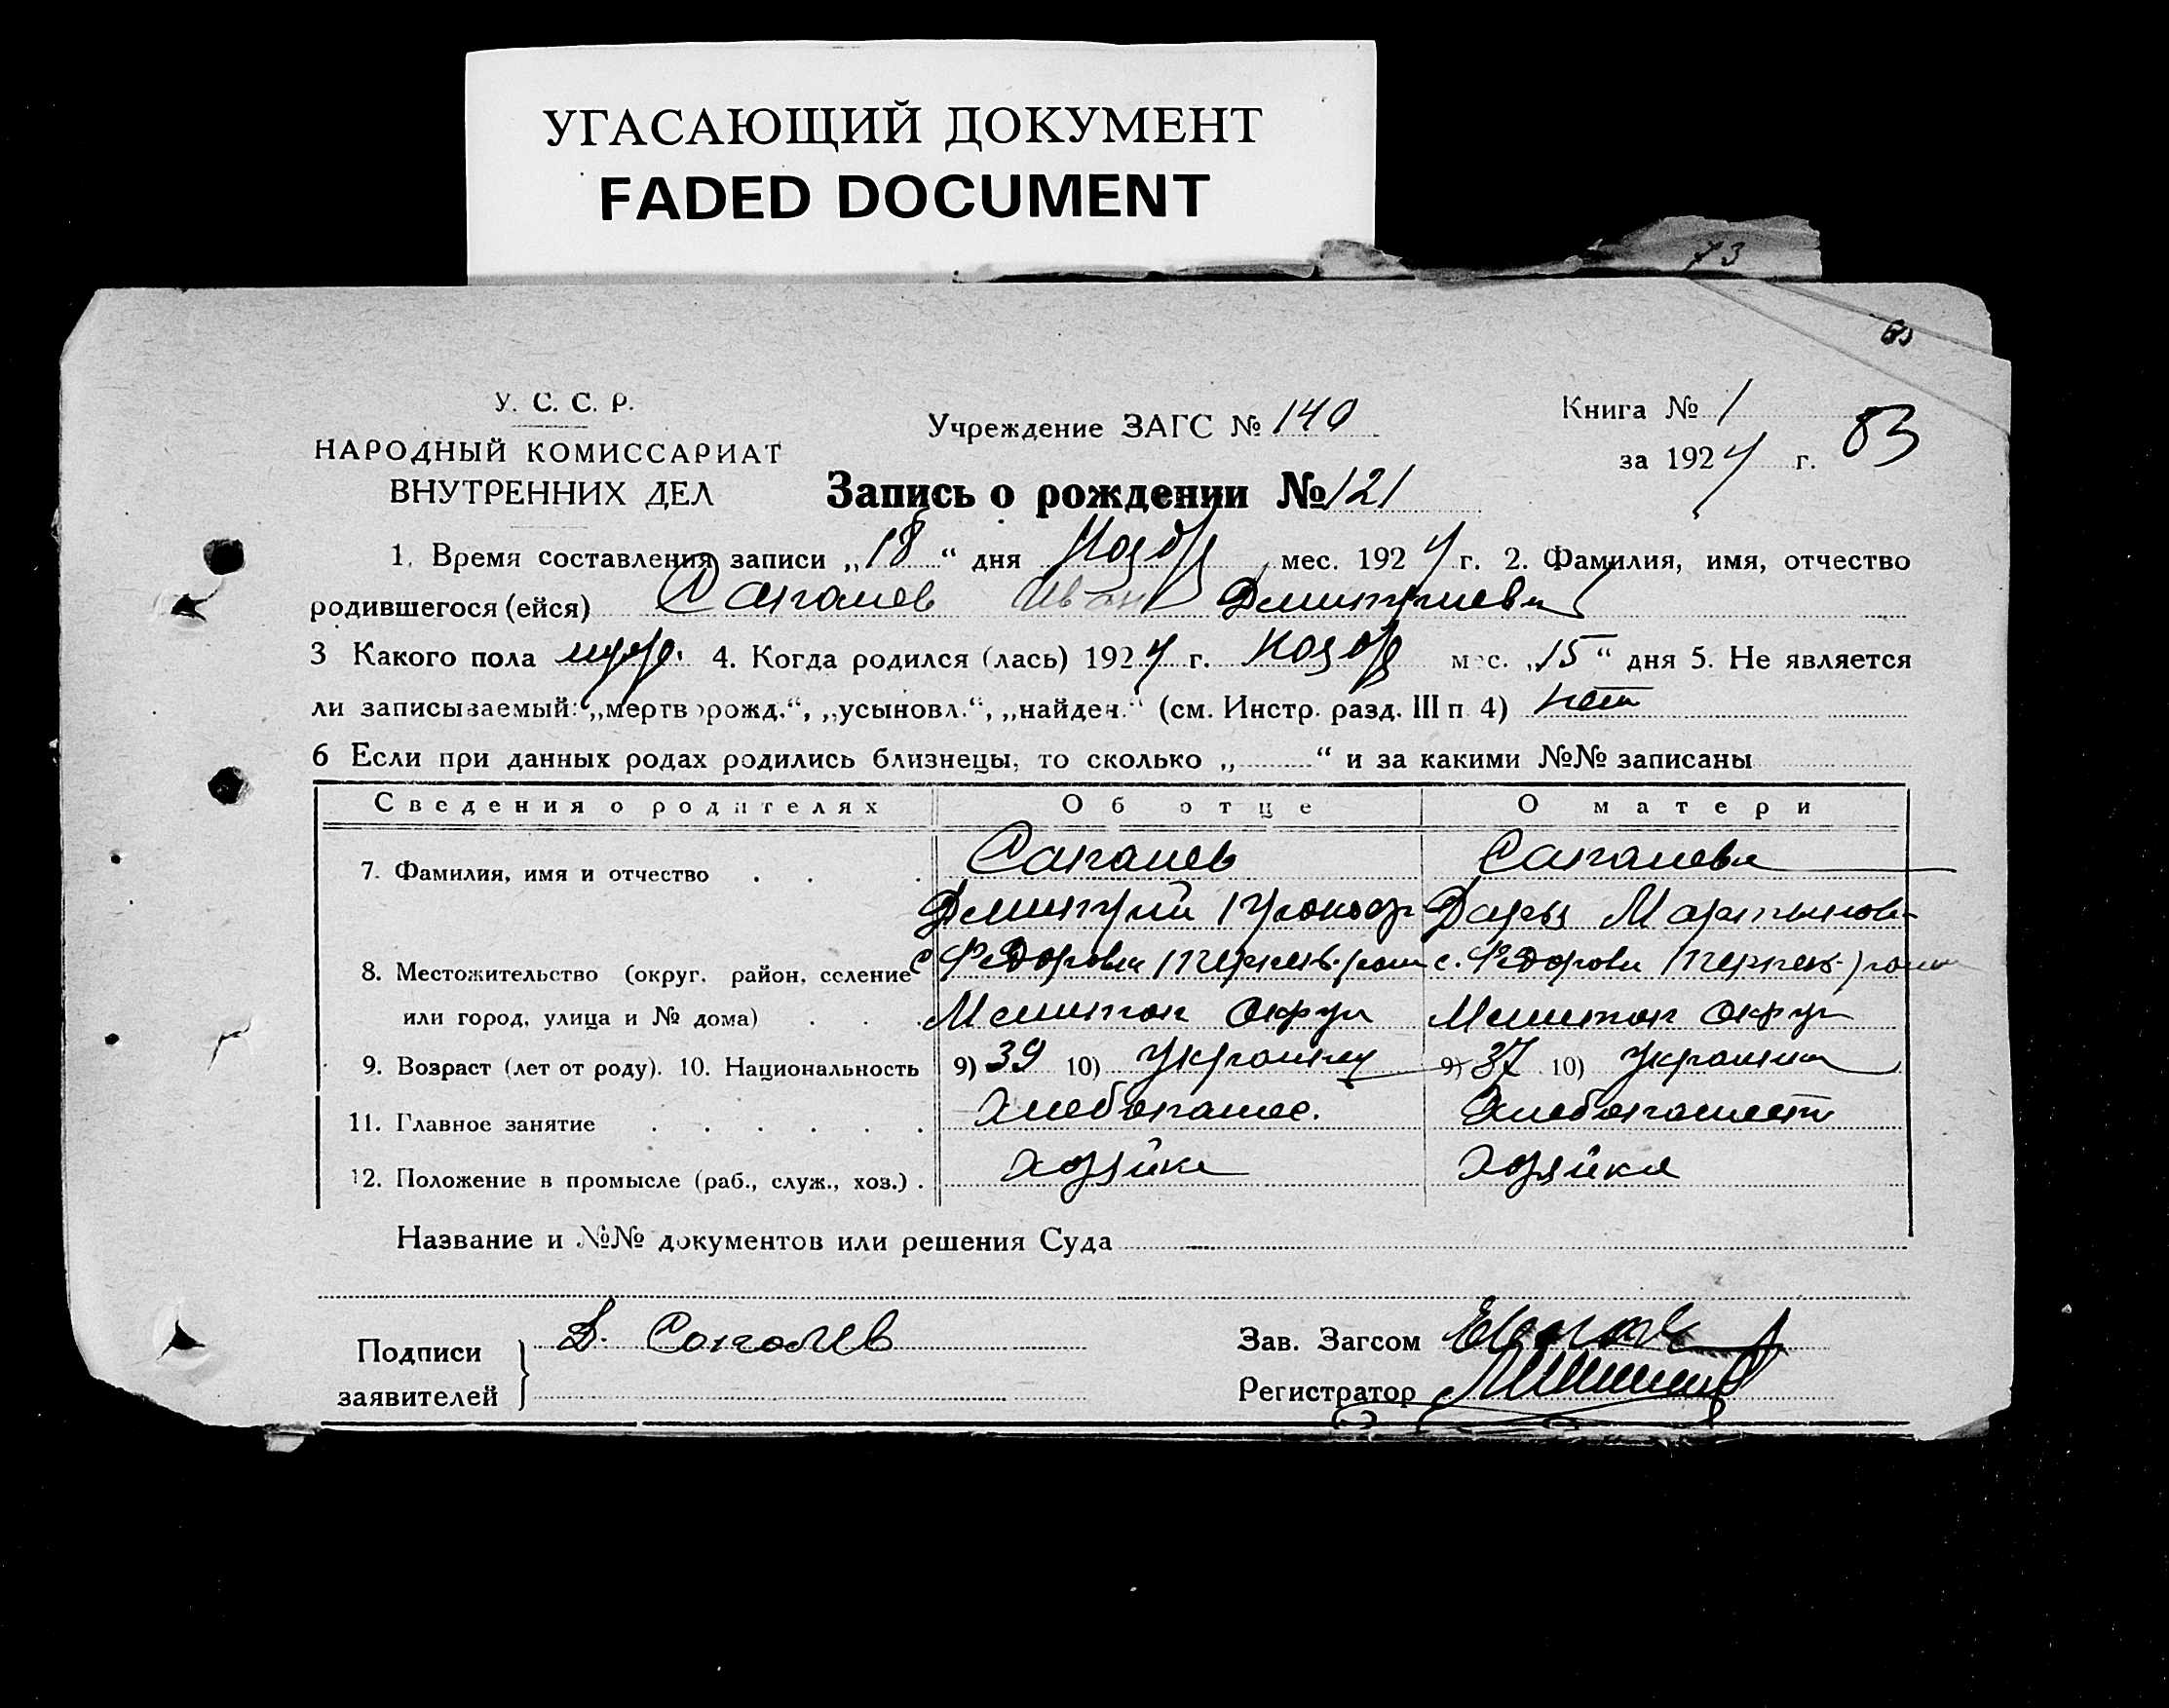 УГАСАЮЩИЙ ДОКУМЕНТ
FADED DOCUMENT
73
У. С. С. Р.
НАРОДНЫЙ КОМИССАРИАТ
ВНУТРЕННИХ ДЕЛ
Учреждение ЗАГС № 140
Книга № 1
за 1924 г.
83
Запись о рождении № 121
1. Время составления записи „18“ дня Нояб мес. 1924 г. 2. Фамилия, имя, отчество
родившегося (ейся) Сапалев Иван Дмитриев
3 Какого пола муж. 4. Когда родился (лась) 1924 г. Нояб мес. „15“ дня 5. Не является
ли записываемый: „мертворожд.“, „усыновл.“, „найден.“ (см. Инстр. разд. III п 4) нет
6 Если при данных родах родились близнецы, то сколько „ “ и за какими №№ записаны
Сведения о родителях Об отце О матери
7. Фамилия, имя и отчество Сапалев Сапалева
Дмитрий Дарья Мартынов
8. Местожительство (округ, район, селение с. Федоровка с. Федоровка
или город, улица и № дома) Мелитоп округ Мелитоп округ
9. Возраст (лет от роду). 10. Национальность 9) 39 10) 9) 37 10)
11. Главное занятие Хлебопашес.
12. Положение в промысле (раб., служ., хоз.) Хозяйка
Название и №№ документов или решения Суда
Подписи
заявителей
Д. Сапалев
Зав. Загсом
Регистратор